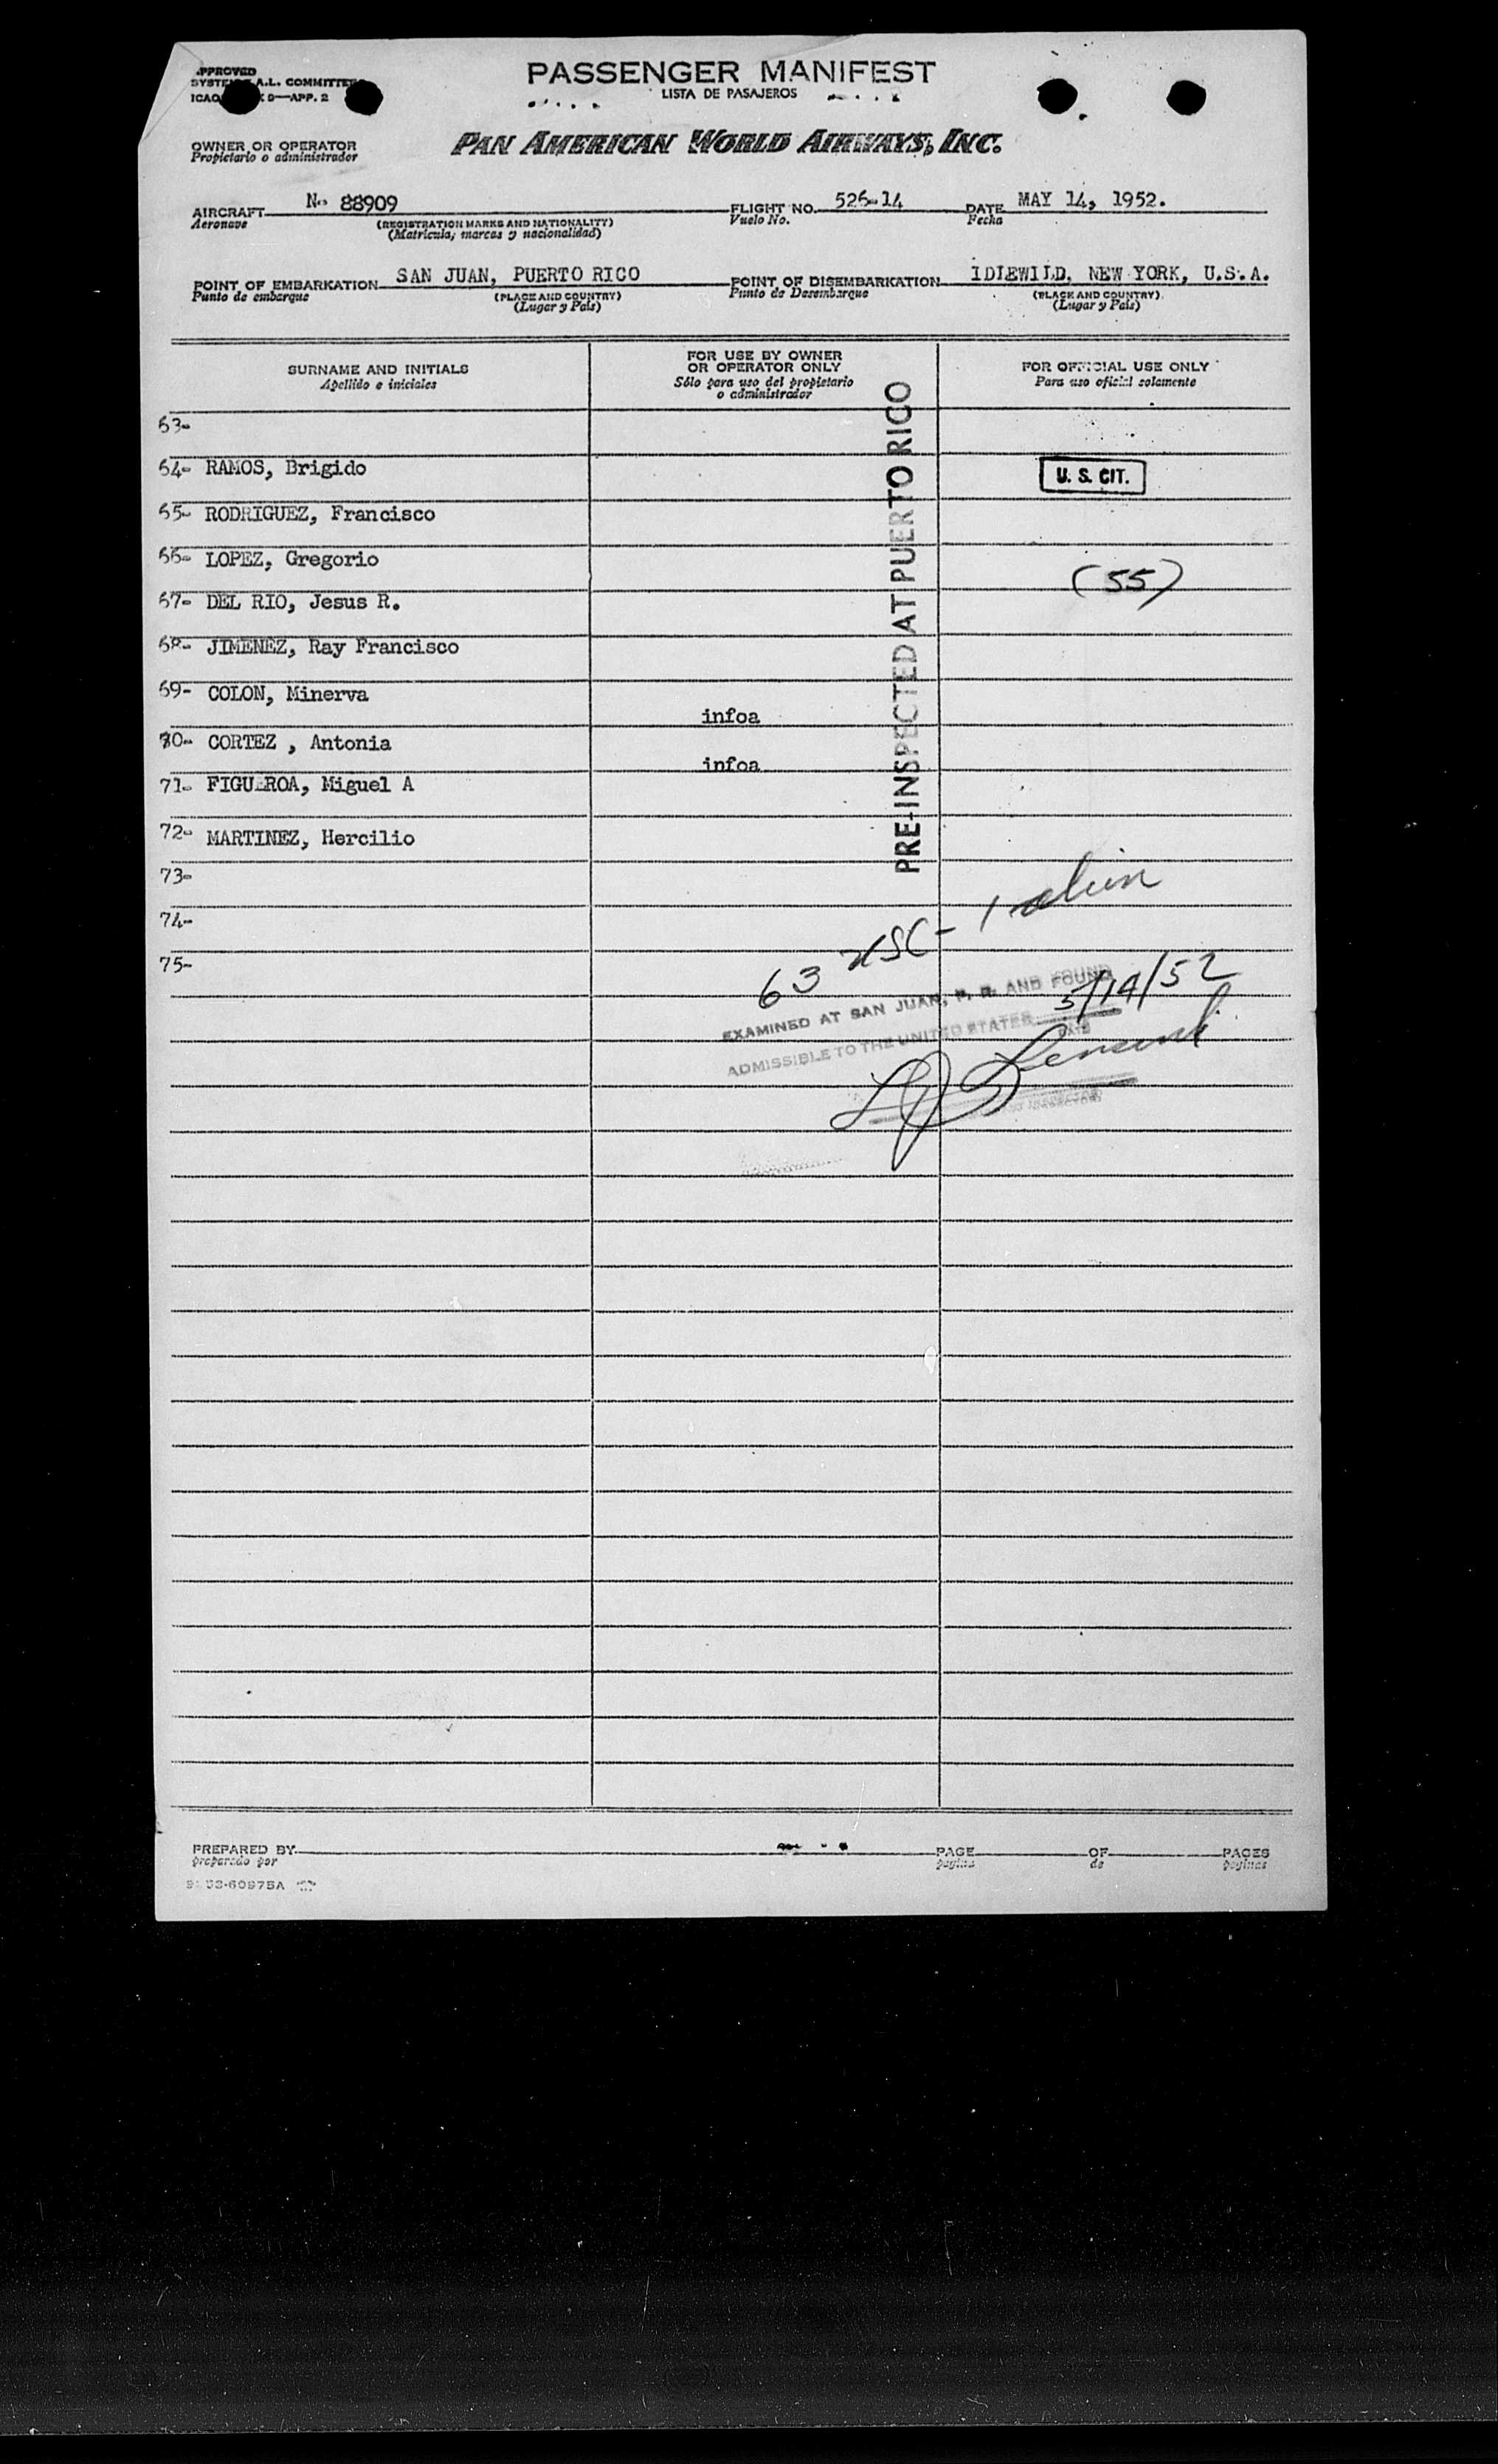 APPROVED
A.L. COMMITTEE
ICAO 9—APP. 2
PASSENGER MANIFEST
LISTA DE PASAJEROS
OWNER OR OPERATOR
Propietario o administrador
PAN AMERICAN WORLD AIRWAYS, INC.
AIRCRAFT N- 88909 FLIGHT NO. 526-14 DATE MAY 14, 1952.
Aeronave (REGISTRATION MARKS AND NATIONALITY) Vuelo No. Fecha
(Matrícula, marcas y nacionalidad)
POINT OF EMBARKATION SAN JUAN, PUERTO RICO POINT OF DISEMBARKATION IDLEWILD, NEW YORK, U.S.A.
Punto de embarque (PLACE AND COUNTRY) Punto de Desembarque (PLACE AND COUNTRY)
(Lugar y País) (Lugar y País)
SURNAME AND INITIALS FOR USE BY OWNER OR OPERATOR ONLY FOR OFFICIAL USE ONLY
Apellido e iniciales Sólo para uso del propietario o administrador Para uso oficial solamente
63-
64- RAMOS, Brigido U. S. CIT.
65- RODRIGUEZ, Francisco
66- LOPEZ, Gregorio
(55)
67- DEL RIO, Jesus R.
68- JIMENEZ, Ray Francisco
69- COLON, Minerva
infoa
70- CORTEZ , Antonia
infoa
71- FIGUEROA, Miguel A
72- MARTINEZ, Hercilio
PRE-INSPECTED AT PUERTO RICO
73-
74-
75-
63 USC - 1 alien
EXAMINED AT SAN JUAN, P. R. AND FOUND
ADMISSIBLE TO THE UNITED STATES 5/14/52
DATE
PREPARED BY PAGE OF PAGES
preparado por pagina de paginas